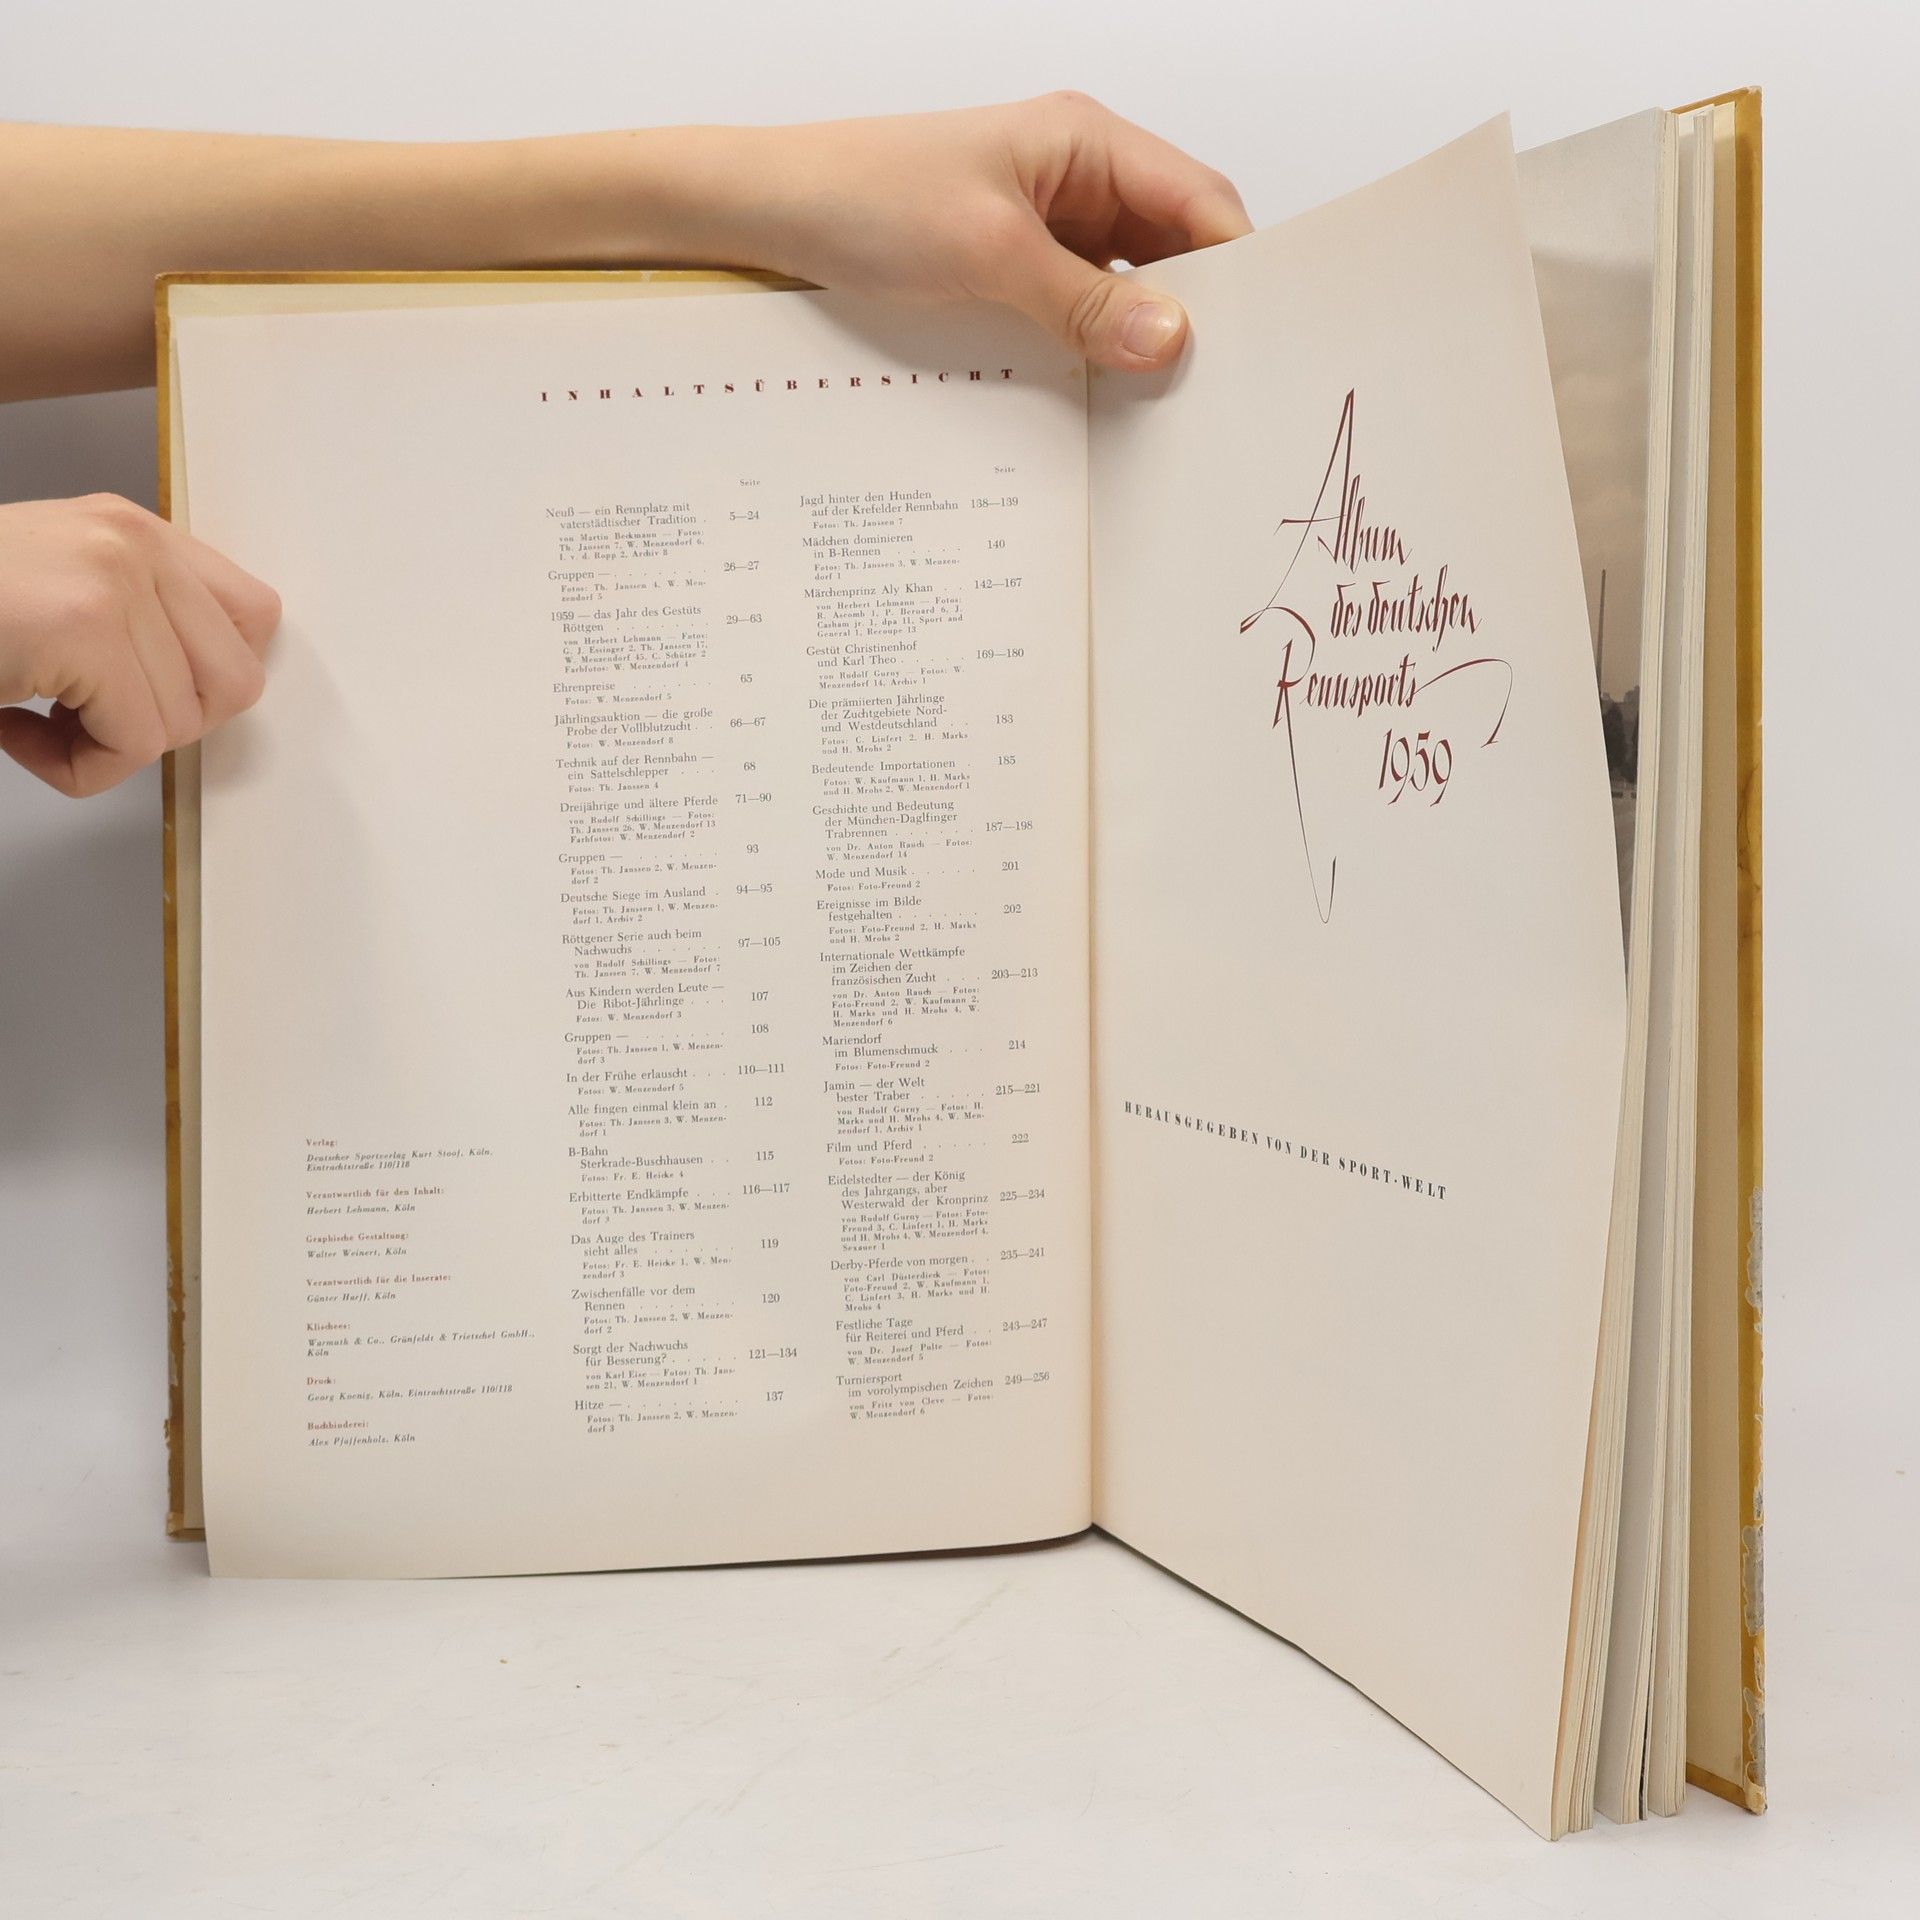 INHALTSÜBERSICHT
Seite
Neuß — ein Rennplatz mit
vaterstädtischer Tradition . 5—24
von Martin Beckmann — Fotos:
Th. Janssen 7, W. Menzendorf 6,
I. v. d. Ropp 2, Archiv 8
Gruppen — . . . . . . . 26—27
Fotos: Th. Janssen 4, W. Men-
zendorf 5
1959 — das Jahr des Gestüts
Röttgen . . . . . . . 29—63
von Herbert Lehmann — Fotos:
G. J. Essinger 2, Th. Janssen 17,
W. Menzendorf 45, C. Schütze 2
Farbfotos: W. Menzendorf 4
Ehrenpreise . . . . . . 65
Fotos: W. Menzendorf 5
Jährlingsauktion — die große
Probe der Vollblutzucht . . 66—67
Fotos: W. Menzendorf 8
Technik auf der Rennbahn —
ein Sattelschlepper . . . 68
Fotos: Th. Janssen 4
Dreijährige und ältere Pferde 71—90
von Rudolf Schillings — Fotos:
Th. Janssen 26, W. Menzendorf 13
Farbfotos: W. Menzendorf 2
Gruppen — . . . . . . 93
Fotos: Th. Janssen 2, W. Menzen-
dorf 2
Deutsche Siege im Ausland . 94—95
Fotos: Th. Janssen 1, W. Menzen-
dorf 1, Archiv 2
Röttgener Serie auch beim
Nachwuchs . . . . . . 97—105
von Rudolf Schillings — Fotos:
Th. Janssen 7, W. Menzendorf 7
Aus Kindern werden Leute —
Die Ribot-Jährlinge . . . 107
Fotos: W. Menzendorf 3
Gruppen — . . . . . . 108
Fotos: Th. Janssen 1, W. Menzen-
dorf 3
In der Frühe erlauscht . . . 110—111
Fotos: W. Menzendorf 5
Alle fingen einmal klein an . 112
Fotos: Th. Janssen 3, W. Menzen-
dorf 1
B-Bahn
Sterkrade-Buschhausen . . 115
Fotos: Fr. E. Heicke 4
Erbitterte Endkämpfe . . . 116—117
Fotos: Th. Janssen 3, W. Menzen-
dorf 3
Das Auge des Trainers
sieht alles . . . . . . 119
Fotos: Fr. E. Heicke 1, W. Men-
zendorf 3
Zwischenfälle vor dem
Rennen . . . . . . . 120
Fotos: Th. Janssen 2, W. Menzen-
dorf 2
Sorgt der Nachwuchs
für Besserung? . . . . . 121—134
von Karl Eise — Fotos: Th. Jans-
sen 21, W. Menzendorf 1
Hitze — . . . . . . . . 137
Fotos: Th. Janssen 2, W. Menzen-
dorf 3
Seite
Jagd hinter den Hunden
auf der Krefelder Rennbahn 138—139
Fotos: Th. Janssen 7
Mädchen dominieren
in B-Rennen . . . . . 140
Fotos: Th. Janssen 3, W. Menzen-
dorf 1
Märchenprinz Aly Khan . . 142—167
von Herbert Lehmann — Fotos:
R. Ascomb 1, P. Bernard 6, J.
Casham jr. 1, dpa 11, Sport and
General 1, Recoupe 13
Gestüt Christinenhof
und Karl Theo . . . . . 169—180
von Rudolf Gurny — Fotos: W.
Menzendorf 14, Archiv 1
Die prämiierten Jährlinge
der Zuchtgebiete Nord-
und Westdeutschland . . 183
Fotos: C. Linfert 2, H. Marks
und H. Mrohs 2
Bedeutende Importationen . 185
Fotos: W. Kaufmann 1, H. Marks
und H. Mrohs 2, W. Menzendorf 1
Geschichte und Bedeutung
der München-Daglfinger
Trabrennen . . . . . . 187—198
von Dr. Anton Rauch — Fotos:
W. Menzendorf 14
Mode und Musik . . . . . 201
Fotos: Foto-Freund 2
Ereignisse im Bilde
festgehalten . . . . . . 202
Fotos: Foto-Freund 2, H. Marks
und H. Mrohs 2
Internationale Wettkämpfe
im Zeichen der
französischen Zucht . . . 203—213
von Dr. Anton Rauch — Fotos:
Foto-Freund 2, W. Kaufmann 2,
H. Marks und H. Mrohs 4, W.
Menzendorf 6
Mariendorf
im Blumenschmuck . . . 214
Fotos: Foto-Freund 2
Jamin — der Welt
bester Traber . . . . . 215—221
von Rudolf Gurny — Fotos: H.
Marks und H. Mrohs 4, W. Men-
zendorf 1, Archiv 1
Film und Pferd . . . . . 222
Fotos: Foto-Freund 2
Eidelstedter — der König
des Jahrgangs, aber
Westerwald der Kronprinz 225—234
von Rudolf Gurny — Fotos: Foto-
Freund 3, C. Linfert 1, H. Marks
und H. Mrohs 4, W. Menzendorf 4,
Sexauer 1
Derby-Pferde von morgen . . 235—241
von Carl Düsterdieck — Fotos:
Foto-Freund 2, W. Kaufmann 1,
C. Linfert 3, H. Marks und H.
Mrohs 4
Festliche Tage
für Reiterei und Pferd . . 243—247
von Dr. Josef Pulte — Fotos:
W. Menzendorf 5
Turniersport
im vorolympischen Zeichen 249—256
von Fritz von Cleve — Fotos:
W. Menzendorf 6
Verlag:
Deutscher Sportverlag Kurt Stoof, Köln,
Eintrachtstraße 110/118
Verantwortlich für den Inhalt:
Herbert Lehmann, Köln
Graphische Gestaltung:
Walter Weinert, Köln
Verantwortlich für die Inserate:
Günter Harff, Köln
Klischees:
Warmuth & Co., Grünfeldt & Trietschel GmbH.,
Köln
Druck:
Georg Koenig, Köln, Eintrachtstraße 110/118
Buchbinderei:
Alex Pfaffenholz, Köln
Album
des deutschen
Rennsports
1959
HERAUSGEGEBEN VON DER SPORT-WELT